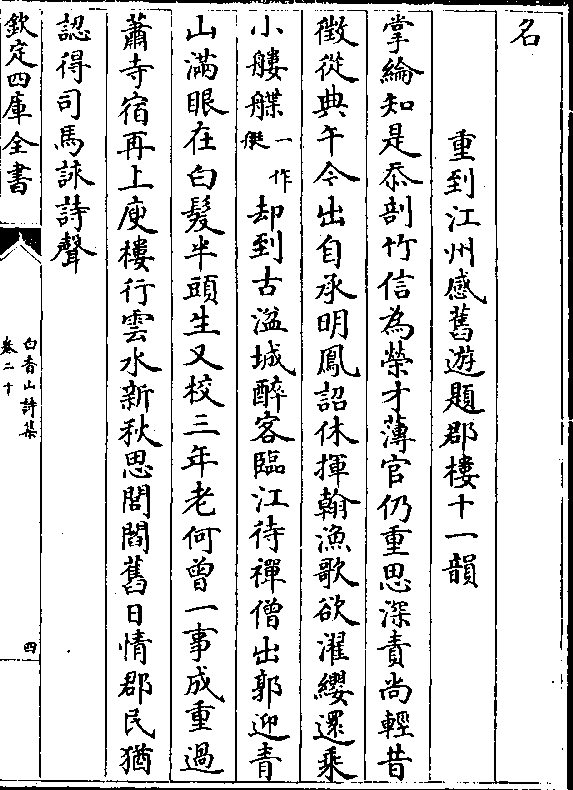 名
重到江州感舊遊題郡樓十一韻
掌綸知是忝剖竹信為榮才薄官仍重恩深責尚輕昔
徵從典午今出自承明鳳詔休揮翰漁歌欲濯纓還乘
小艛艓一作艓却到古湓城醉客臨江待禪僧出郭迎青
山滿眼在白髮半頭生又校三年老何曾一事成重過
蕭寺宿再上庾樓行雲水新秋思閭閻舊日情郡民猶
認得司馬詠詩聲
欽定四庫全書
白香山詩集
卷二十
四